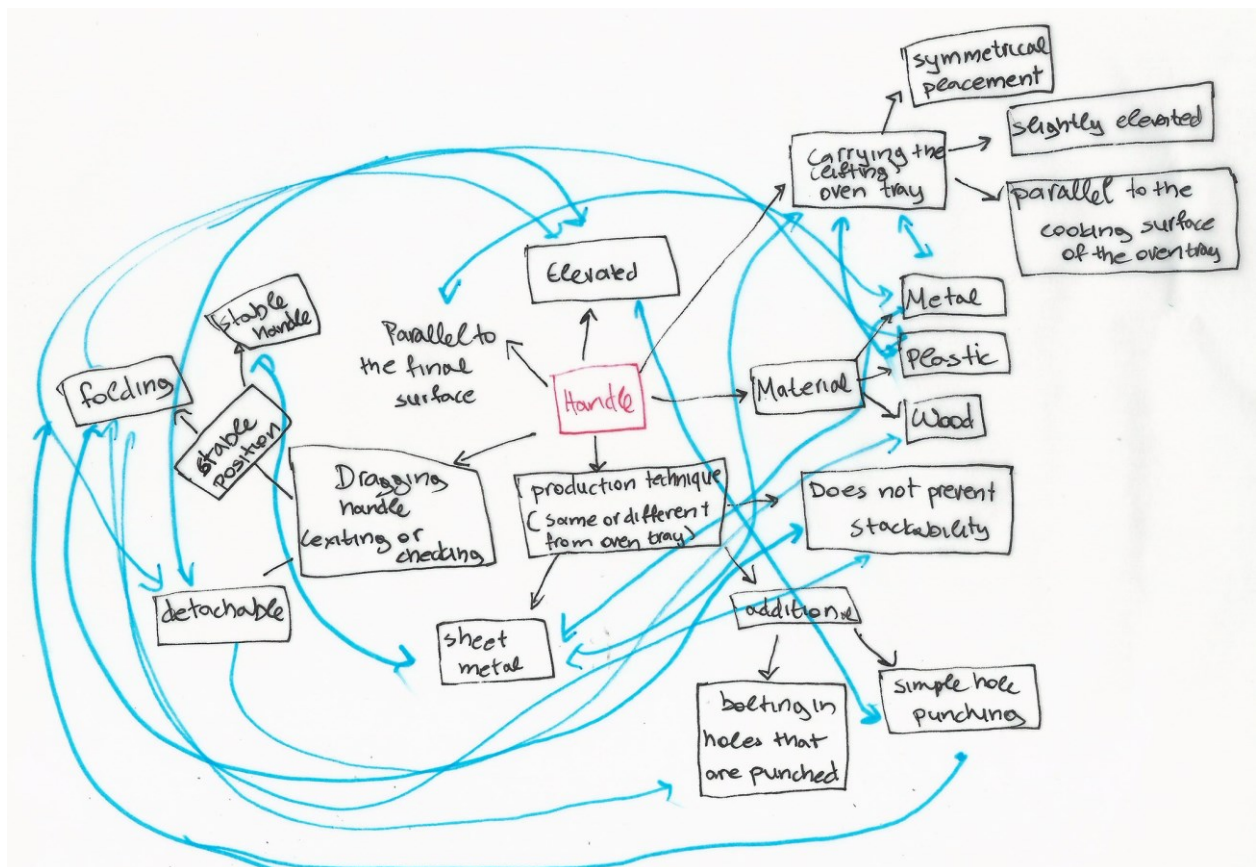 symmetrical
peacement
slightly elevated
Carrying the
lifting
oven tray
parallel to the
cooking surface
of the oven tray
Elevated
Metal
Plastic
Wood
Material
stable
handle
Parallel to
the final
surface
Handle
folding
stable
position
Dragging
handle
(exiting or
checking
production technique
(same or different
from oven tray)
Does not prevent
stackability
detachable
sheet
metal
addition
simple hole
punching
bolting in
holes that
are punched